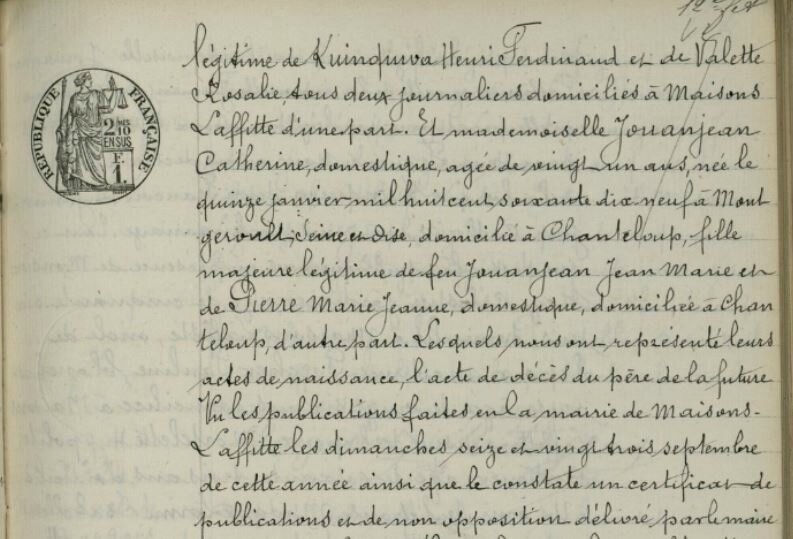 légitime de Kuinquva Henri Ferdinand et de Valette
Rosalie, tous deux journaliers domiciliés à Maisons
Laffitte d'une part. Et mademoiselle Jouanjean
Catherine, domestique, agée de vingt un ans, née le
quinze janvier mil huit cent soixante dix neuf à Mont
geroult, Seine et Oise, domiciliée à Chanteloup, fille
majeure légitime de feu Jouanjean Jean Marie et
de Pierre Marie Jeanne, domestique, domiciliée à Chan
teloup, d'autre part. Lesquels nous ont représenté leurs
actes de naissance, l'acte de décès du père de la future
Vu les publications faites en la mairie de Maisons-
Laffitte les dimanches seize et vingt trois septembre
de cette année ainsi que le constate un certificat de
publications et de non opposition délivré par le maire
REPUBLIQUE FRANÇAISE
2/10
EN SUS
F.
1.